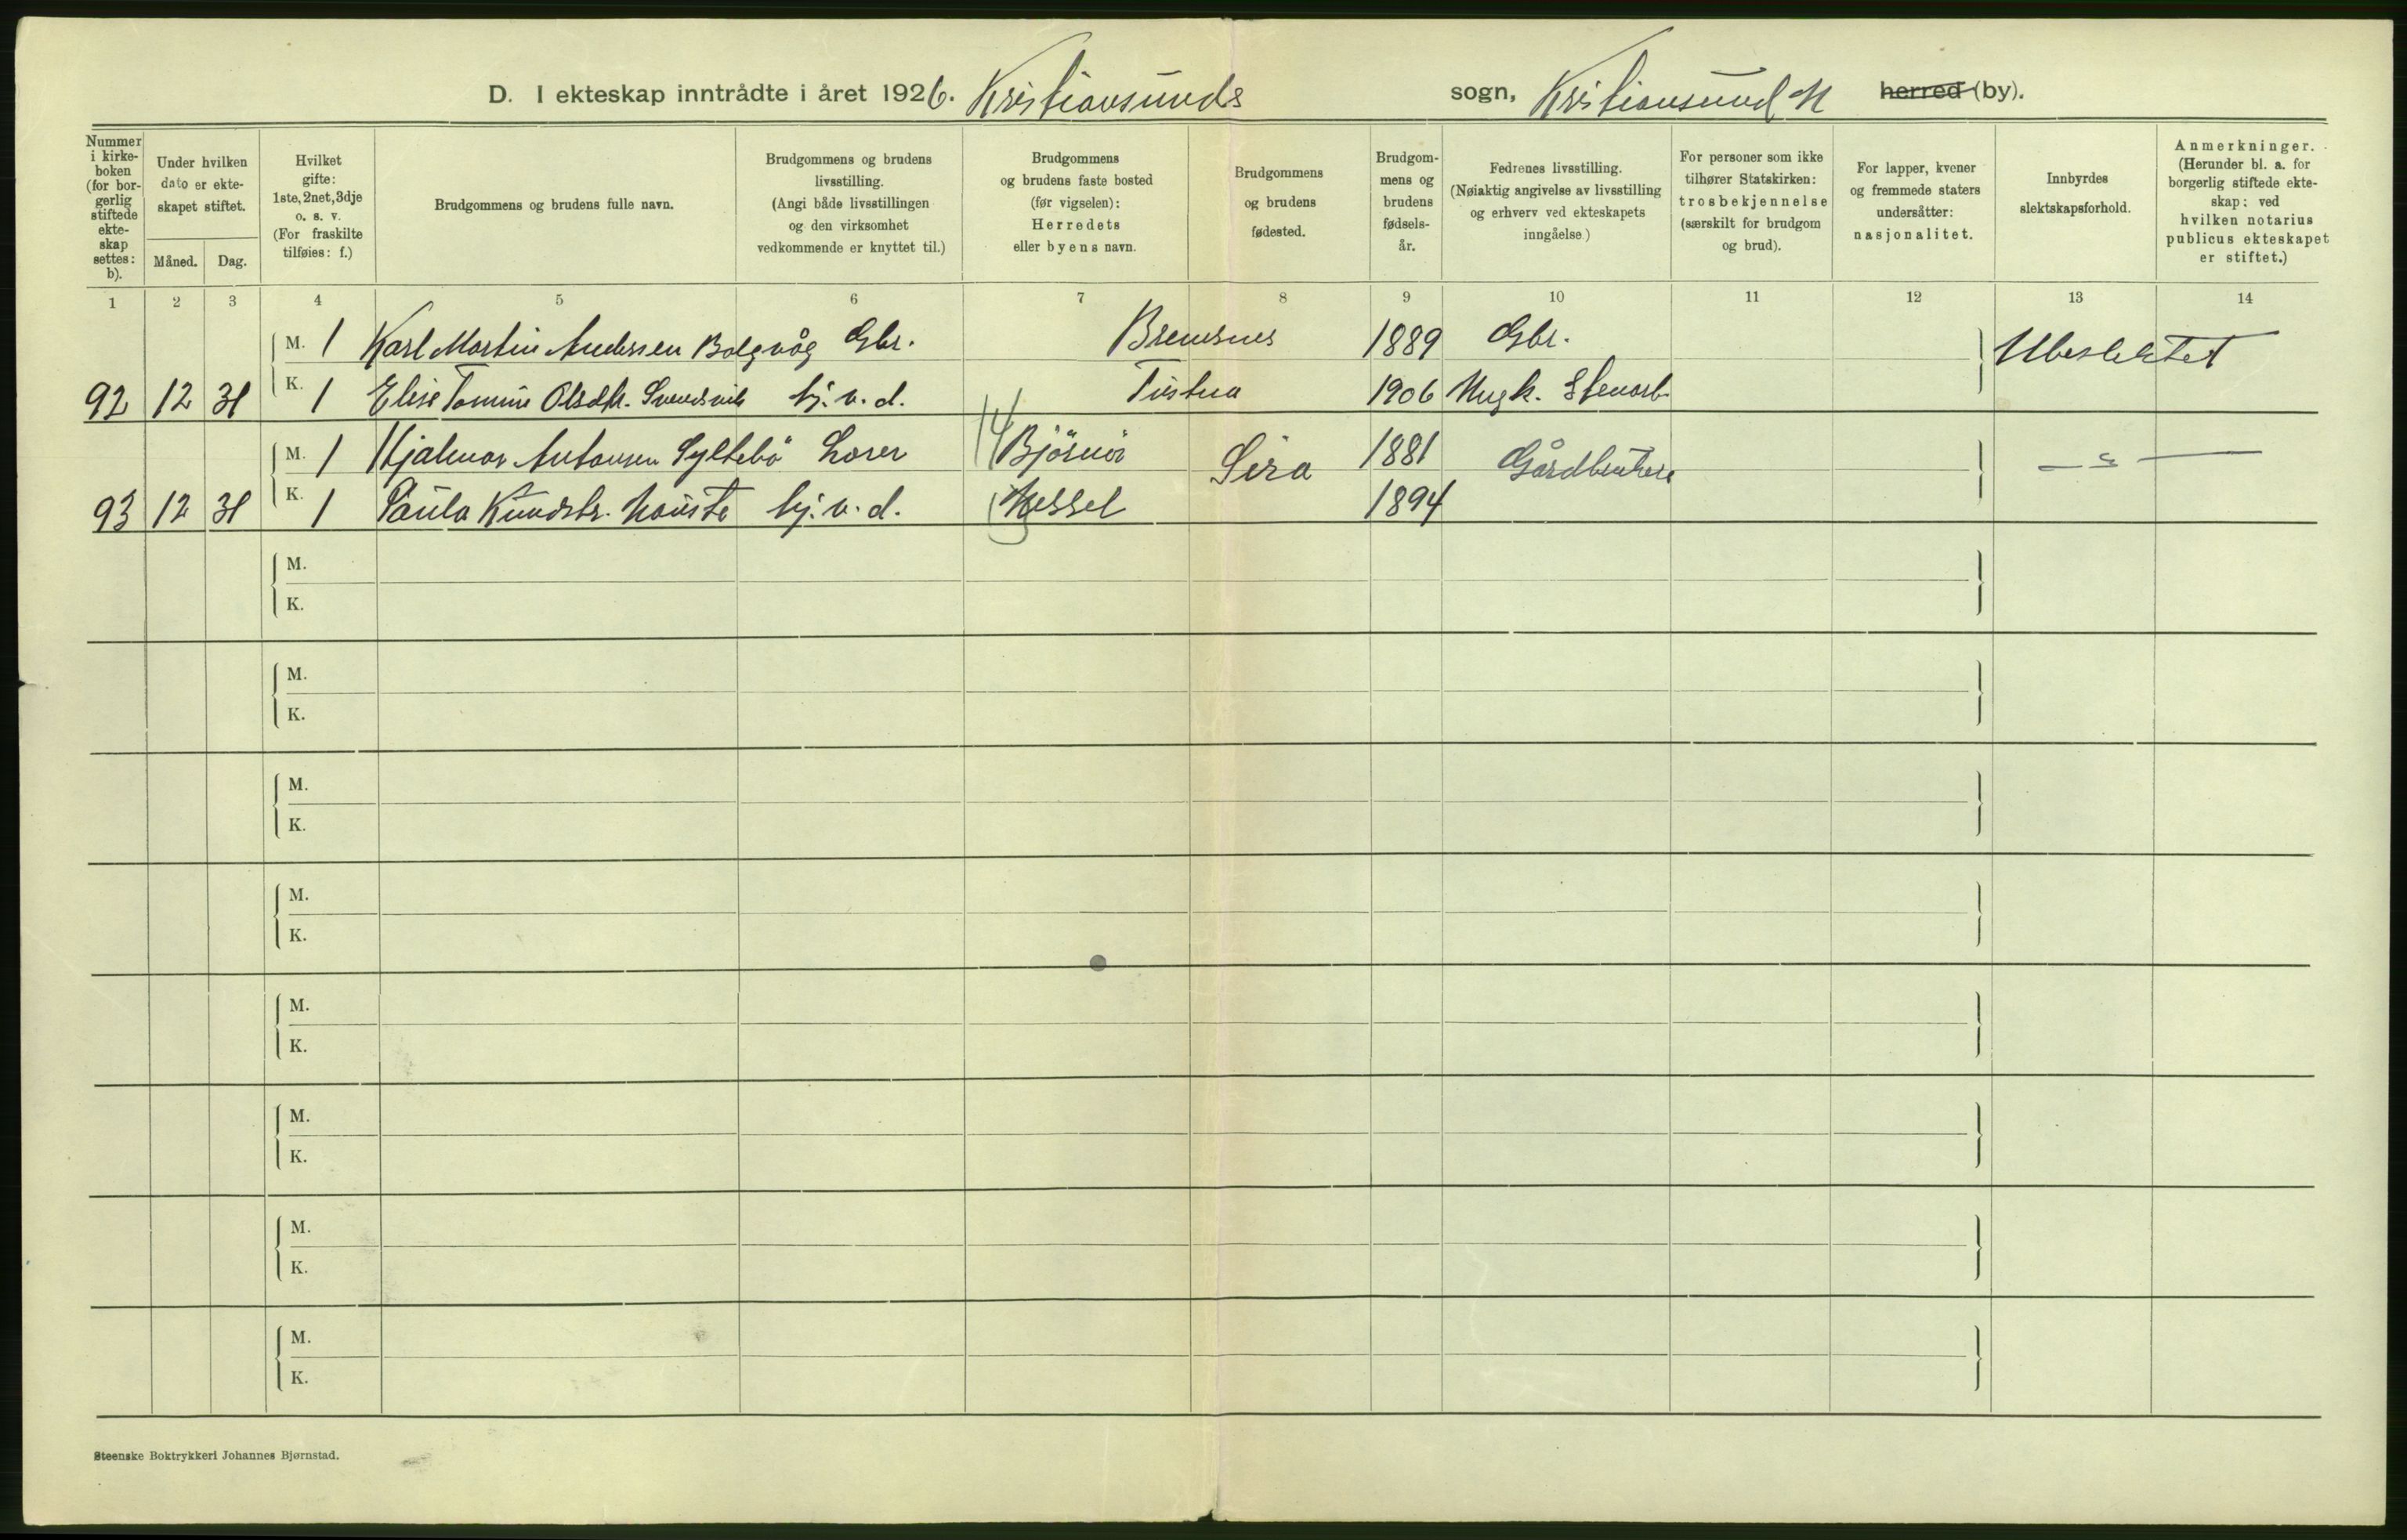 D. I ekteskap inntrådte i året 1926. Kristiansunds sogn, Kristiansund N herred (by).
Nummer i kirke-boken (for bor-gerlig stiftede ekte-skap settes: b).
Under hvilken dato er ekte-skapet stiftet.
Måned. Dag.
Hvilket gifte: 1ste, 2net, 3dje o. s. v. (For fraskilte tilføies: f.)
Brudgommens og brudens fulle navn.
Brudgommens og brudens livsstilling. (Angi både livsstillingen og den virksomhet vedkommende er knyttet til.)
Brudgommens og brudens faste bosted (før vigselen): Herredets eller byens navn.
Brudgommens og brudens fødested.
Brudgom-mens og brudens fødsels-år.
Fedrenes livsstilling. (Nøiaktig angivelse av livsstilling og erhverv ved ekteskapets inngåelse)
For personer som ikke tilhører Statskirken: trosbekjennelse (særskilt for brudgom og brud).
For lapper, kvener og fremmede staters undersåtter: nasjonalitet.
Innbyrdes slektskapsforhold.
Anmerkninger. (Herunder bl. a. for borgerlig stiftede ekte-skap: ved hvilken notarius publicus ekteskapet er stiftet.)
1 2 3 4 5 6 7 8 9 10 11 12 13 14
M. 1 Karl Martin Anderssen Bolgvåg Gbr. Bremsnes 1889 Gbr. Ubeslektet
92 12 31 K. 1 Elise Tomine Olsdtr. Svendsvik hj. v. d. Tustna 1906 Ungk. Stenarb.
M. 1 Hjalmar Antonsen Syltebö Loser 14 Björnör Sira 1881 Gårdbrukere — " —
93 12 31 K. 1 Paula Knudstr. Nauste hj. v. d. Nessel 1894
M.
K.
M.
K.
M.
K.
M.
K.
M.
K.
M.
K.
M.
K.
M.
K.
Steenske Boktrykkeri Johannes Bjørnstad.